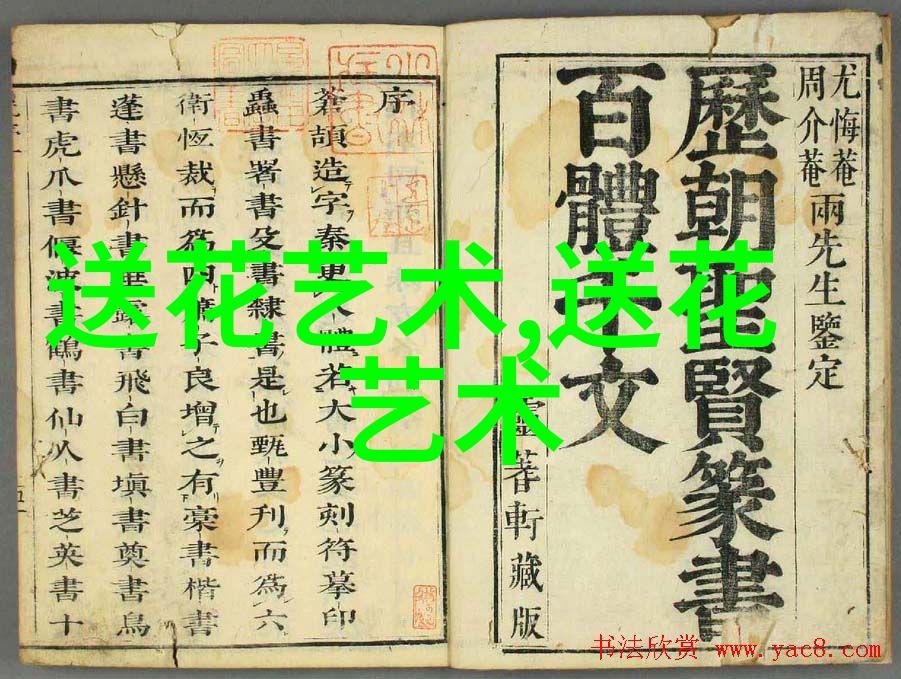 送花艺术,送花
艺术
尤悔菴
周介菴
兩先生鑒定
歷朝聖賢篆書
百體千文
軒藏版
序
蒼頡造字秦吏體若大小篆刻符摹印
蟲書署書殳書隸書是也甄豐刋而為六
衛恆裁而為四子良增之有藁書楷書
蓬書懸針書垂露書飛白書塡書奠書鳥
書虎爪書偃波書鶴書仙人書芝英書十
书法欣赏 www.yac8.com